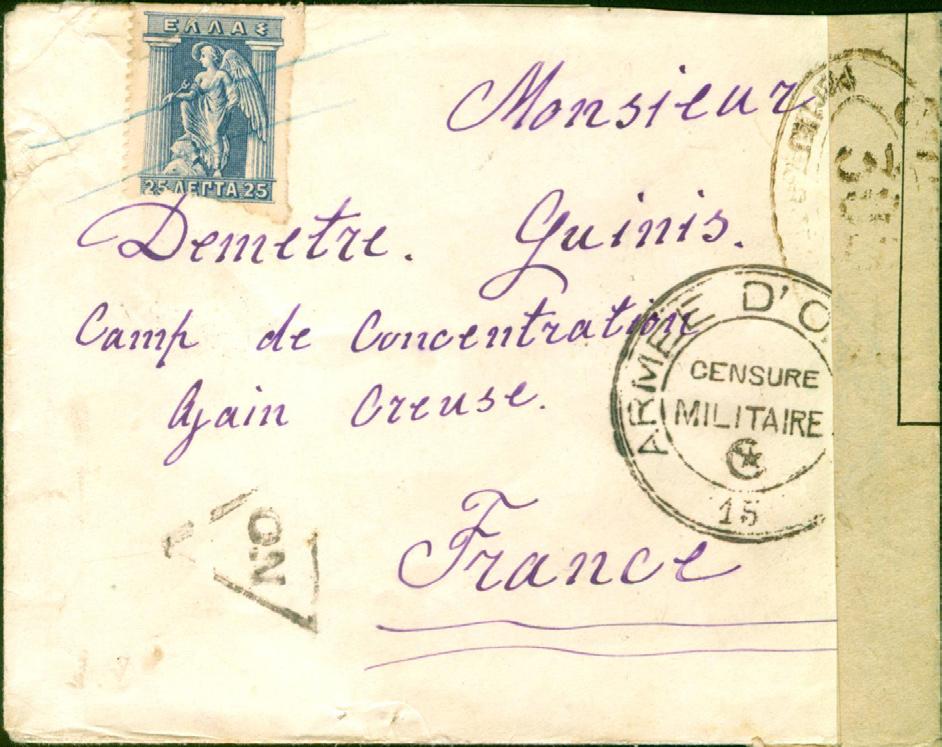 ΕΛΛΑΣ
25 ΛΕΠΤΑ 25
Monsieur
Demetre. Guinis.
Camp de Concentration
Ajain Creuse.
France
ARMÉE D'O
CENSURE
MILITAIRE
15
O.N